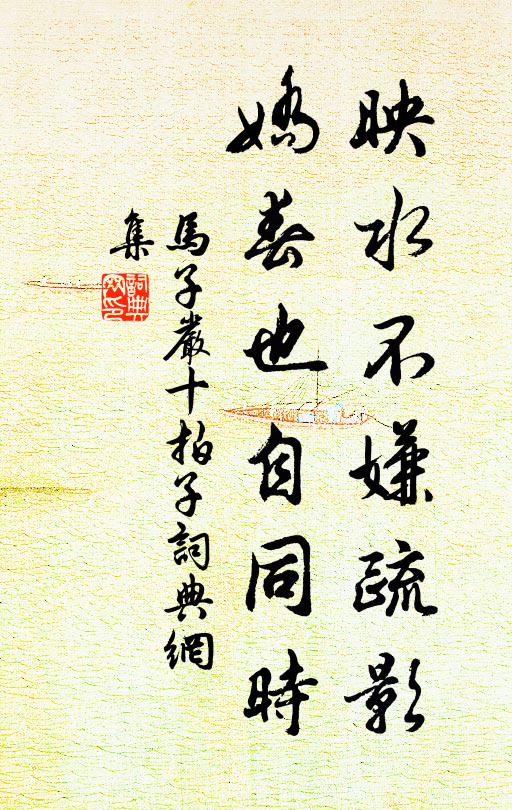 映水不嫌疏影
嬌春也自同時
馬子嚴十拍子詞典網
集
詞典
网印